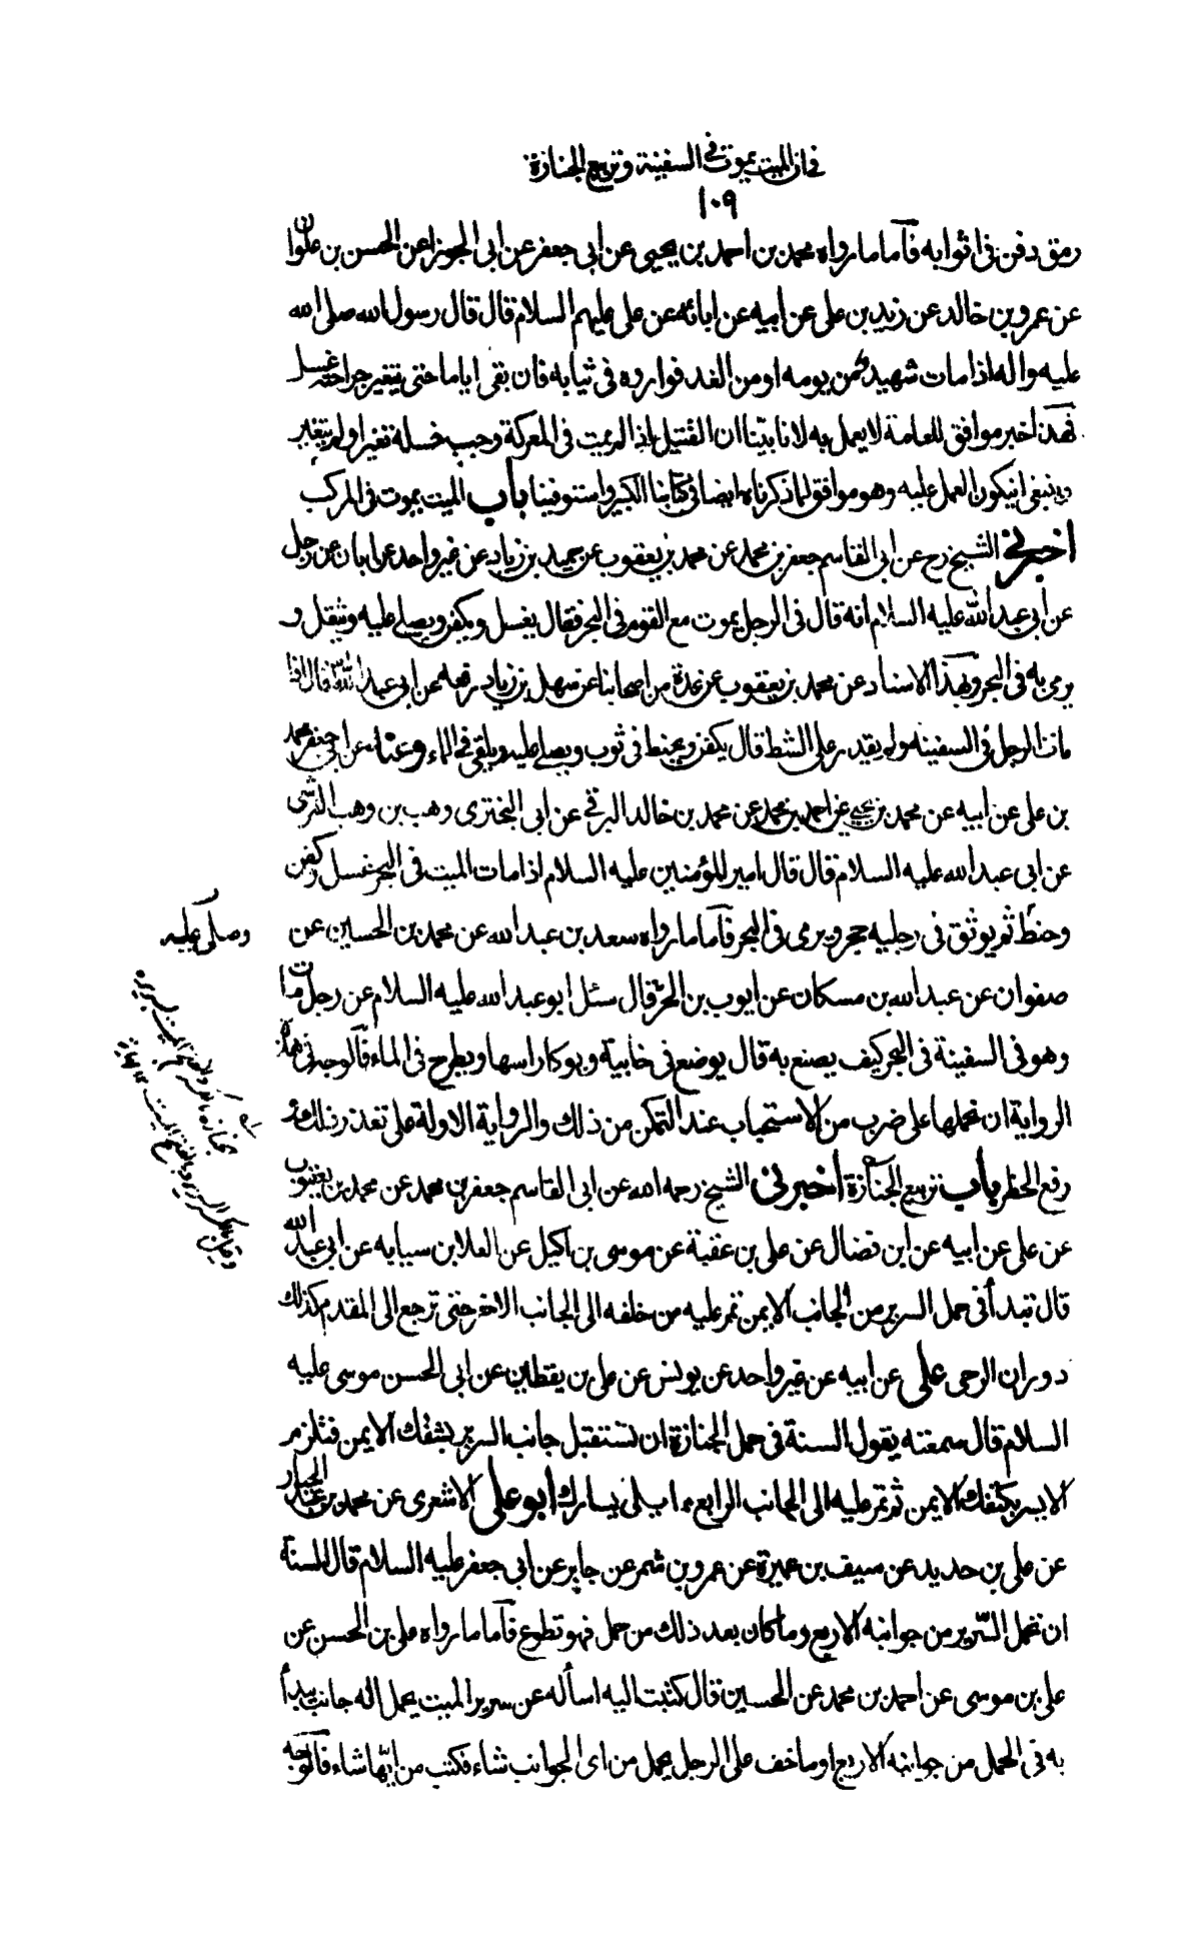 في ان الميت يموت في السفينة وتربيع الجنازة
١٠٩
رمق دفن في اثوابه فأما ما رواه محمد بن احمد بن يحيى عن ابي جعفر عن ابي الجوزا عن الحسين بن علوان
عن عمرو بن خالد عن زيد بن علي عن ابيه عن ابائه عن علي عليهم السلام قال قال رسول الله صلى الله
عليه واله اذا مات شهيد من يومه او من الغد فواروه في ثيابه فان بقى اياما حتى يتغير جراحته غسل
فهذا خبر موافق للعامة لا يعمل به لانا بيّنا ان القتيل اذا لم يمت في المعركة وجب غسله تغير او لم يتغير
وينبغي ان يكون العمل عليه وهو موافق لما ذكرناه ايضا في كتابنا الكبير واستوفينا باب الميت يموت في المركب
اخبرني الشيخ رح عن ابي القاسم جعفر بن محمد عن محمد بن يعقوب عن حميد بن زياد عن غير واحد عن ابان عن رجل
عن أبي عبد الله عليه السلام انه قال في الرجل يموت مع القوم في البحر فقال يغسل ويكفن ويصلى عليه ويثقل و
يرمى به في البحر وبهذا الاسناد عن محمد بن يعقوب عن عدة من اصحابنا عن سهل بن زياد رفعه عن ابي عبد الله ع قال اذا
مات الرجل في السفينة ولم يقدر على الشط قال يكفن ويحنط في ثوب ويصلى عليه ويلقى في الماء وعنه عن ابي جعفر محمد
بن علي عن ابيه عن محمد بن يحيى عن احمد بن محمد عن محمد بن خالد البرقي عن ابي البختري وهب بن وهب القرشي
عن ابي عبد الله عليه السلام قال قال امير المؤمنين عليه السلام اذا مات الميت في البحر غسل وكفن
وحنط ثم يوثق في رجليه حجر ويرمى في البحر فأما ما رواه سعد بن عبد الله عن محمد بن الحسين عن
وصلى عليه
صفوان عن عبد الله بن مسكان عن ايوب بن الحرّ قال سئل ابو عبد الله عليه السلام عن رجل مات
وهو في السفينة في البحر كيف يصنع به قال يوضع في خابية ويوكا راسها ويطرح في الماء فالوجه في هذه
الرواية ان نحملها على ضرب من الاستحباب عند التمكن من ذلك والرواية الاولة على تعذر ذلك و
رفع الحظر باب تربيع الجنازة اخبرني الشيخ رحمه الله عن ابي القاسم جعفر بن محمد عن محمد بن يعقوب
عن علي عن ابيه عن ابن فضال عن علي بن عقبة عن موسى بن اكيل عن العلا بن سيابه عن ابي عبد الله
قال تبدأ في حمل السرير من الجانب الايمن تمر عليه من خلفه الى الجانب الاخر حتى ترجع الى المقدم كذلك
دوران الرحى علي عن ابيه عن غير واحد عن يونس عن علي بن يقطين عن ابي الحسن موسى عليه
السلام قال سمعته يقول السنة في حمل الجنازة ان تستقبل جانب السرير بشقك الايمن فتلزم
الايسر بكتفك الايمن ثم تمر عليه الى الجانب الرابع مما يلي يسارك أبو علي الاشعري عن محمد بن عبد الجبار
عن علي بن حديد عن سيف بن عميرة عن عمرو بن شمر عن جابر عن ابي جعفر عليه السلام قال السنة
ان تحمل السّرير من جوانبه الاربع وما كان بعد ذلك من حمل فهو تطوع فأما ما رواه علي بن الحسن عن
علي بن موسى عن احمد بن محمد عن الحسين قال كتبت اليه اسأله عن سرير الميت يحمل اله جانب يبدأ
به في الحمل من جوانبه الاربع او ما خف على الرجل يحمل من اى الجوانب شاء فكتب من ايّها شاء فالوجه